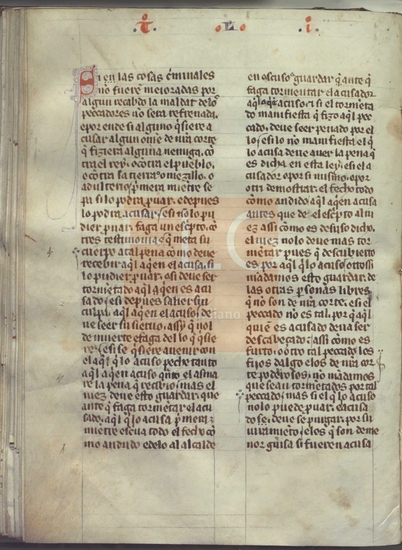 Si en las cosas cĩminales
no fuere mejoradas por
algun
pecadores no sera refrenada
epor ende si alguno qͥsiere a
cusar algun ome de ñra corte
q̃ fiziera alguna nemiga, co
tra el rey, o cotra el pueblo,
o cotra la tierra o mezillo, o
adulterio, p̃mera miẽtre se
pa si lo podra puar, e depues
lo podra acusar, e si no lo pu
dier puar, faga un escpto, cõ
tres testimonias
cuerpo atal pena como deue
recebir aql aqen el acusa, si
lo pudier puar, si deue ser
tormẽtado aql aqen es acu
sado, e si depues
culpa aql aqen el acuso, de
ue seer su sieruo, assy q̃ nol
de muerte e faga del lo q̃ qsie
re, e si se qsiere auenir con
el aql qlo acuso peche tanto
aql aqen acuso
re la pena q̃ recibio, mas el
iuez deue esto guardar, que
ante q̃ faga tormẽtar el acu
sado, aql qlo acusa p̃mera
miẽtre escriua todo el fecho co
mo andido e delo al alcalde
en escuso guardar q̃ ante q̃
faga tormentar el acusador
aql acuso, e si el tormẽta
do manifiesta q̃ fizo aql pe
cado, deue seer penado por el
lo, e si lo no manifiesta el q̃
lo acusa deue auer la pena q̃
es dicha en esta ley, e si el a
cusador e por si mismo, o por
otri demostrare el fecho todo
como andido aql aqen acusa
antes que de el escpto al iu
ez assi como es desuso dicho,
el iuez nolo deue mas tor
mẽtar pues q̃ descubierto
es por aql qlo acuso, otrossi
mãdamos esto guardar de
las otras psonas libres,
q̃ no son de ñra corte, e si el
pecado no es tal, por aql
que es acusado deua ser
descabeçado, assi como es
furto, o otro tal pecado, los
fijos dalgo e los de ñra cor
te e poderosos, no mãdamos
que sean tormẽtados por tal
pecado, mas si el q̃ lo acusa
nolo puede puar, el acusa
do se deue se purgar por su
iuramiẽto, e los q̃ son de me
nor guisa si fueren acusa